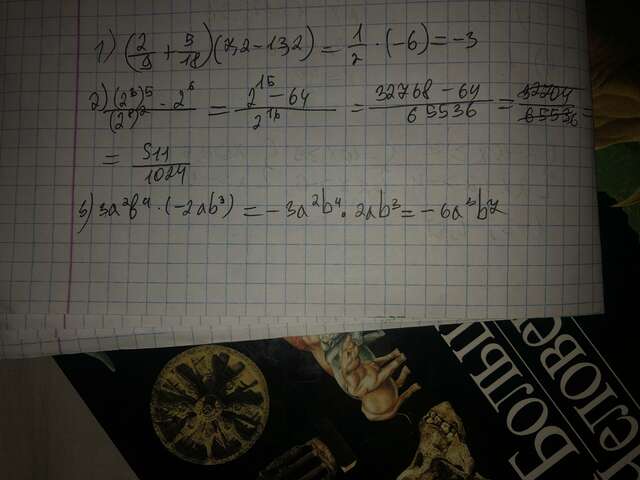 1) (2/9 + 5/18)(7,2 - 13,2) = 1/2 · (-6) = -3
2) (2³)⁵ - 2⁶ / (2⁸)² = 2¹⁵ - 64 / 2¹⁶ = 32768 - 64 / 65536 = 32704 / 65536 =
= 511 / 1024
3) 3a²b⁴ · (-2ab³) = -3a²b⁴ · 2ab³ = -6a³b⁷
БОЛЬШ
ЧЕЛОВЕ